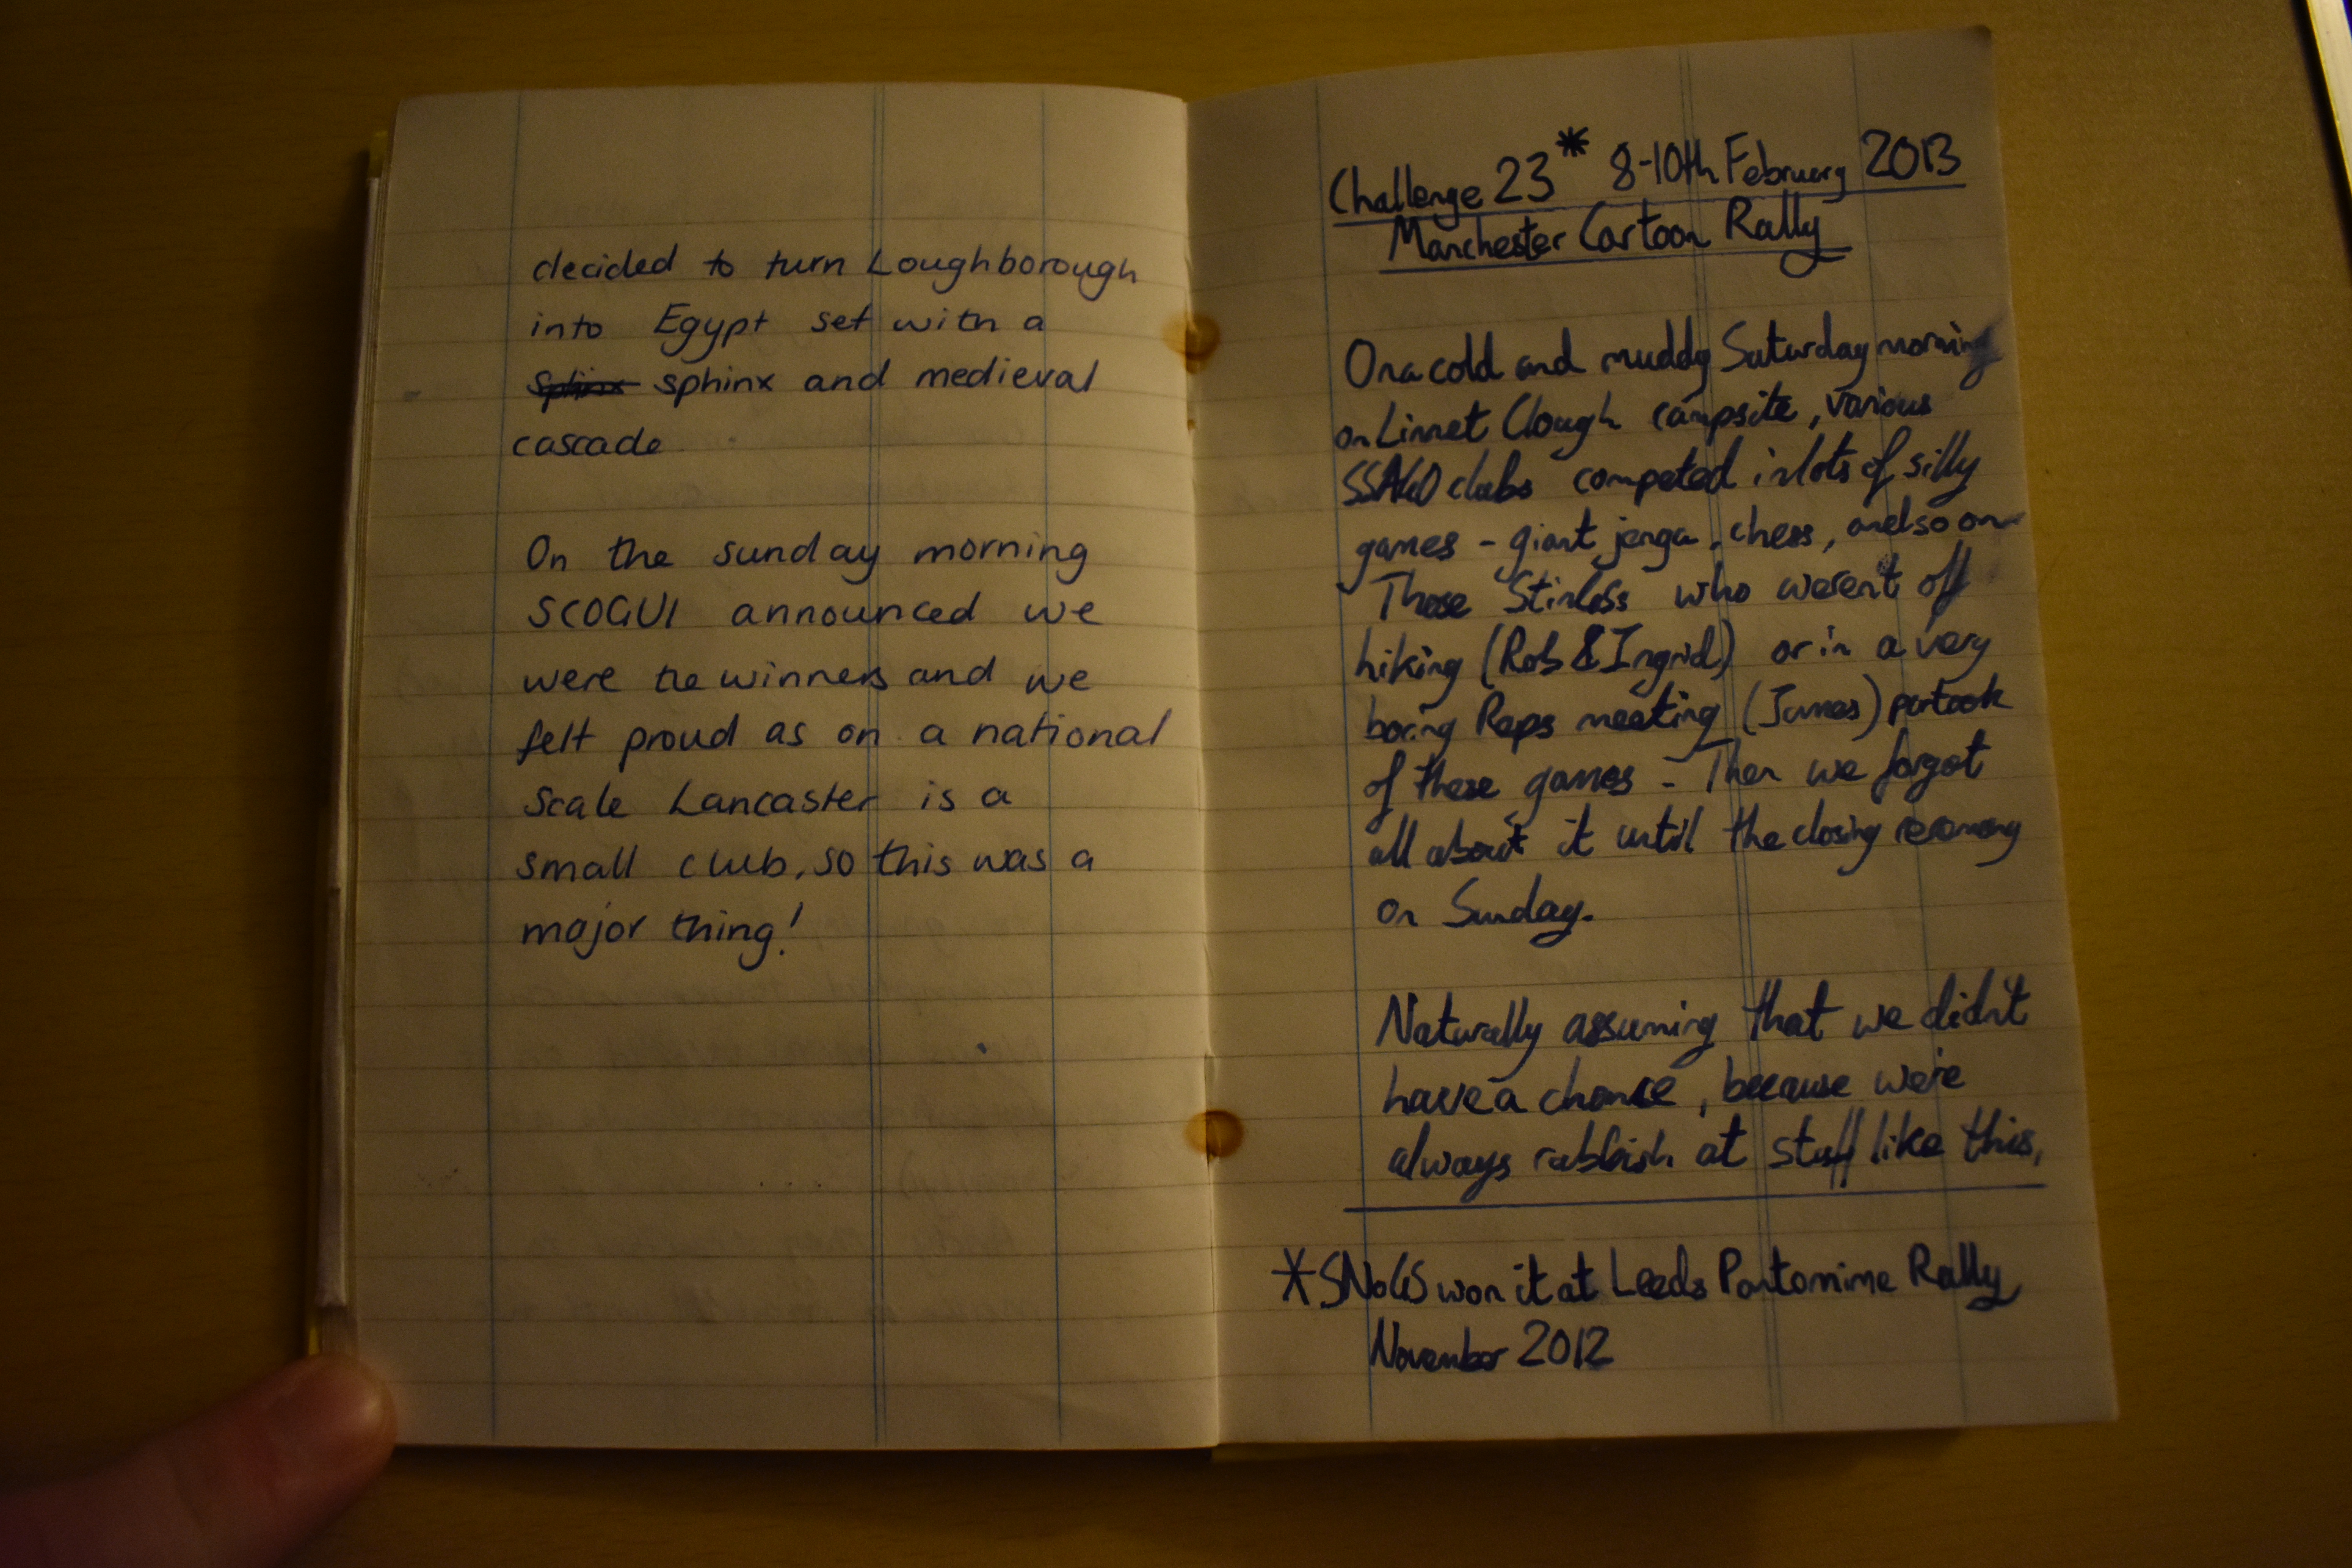 decided to turn Loughborough
into Egypt set with a
sphinx sphinx and medieval
cascade
On the sunday morning
SCOGUI announced we
were the winners and we
felt proud as on a national
scale Lancaster is a
small club, so this was a
major thing!
Challenge 23* 8-10th February 2013
Manchester Cartoon Rally
On a cold and muddy Saturday morning
on Linnet Clough campsite, various
SSAGO clubs competed in lots of silly
games - giant jenga, chess, and so on
Those who weren't off
hiking (Rob & Ingrid) or in a very
boring Reps meeting (James) partook
of these games - Then we forgot
all about it until the closing ceremony
on Sunday.
Naturally assuming that we didn't
have a chance, because we're
always rubbish at stuff like this,
*SNoGS won it at Leeds Pantomime Rally
November 2012